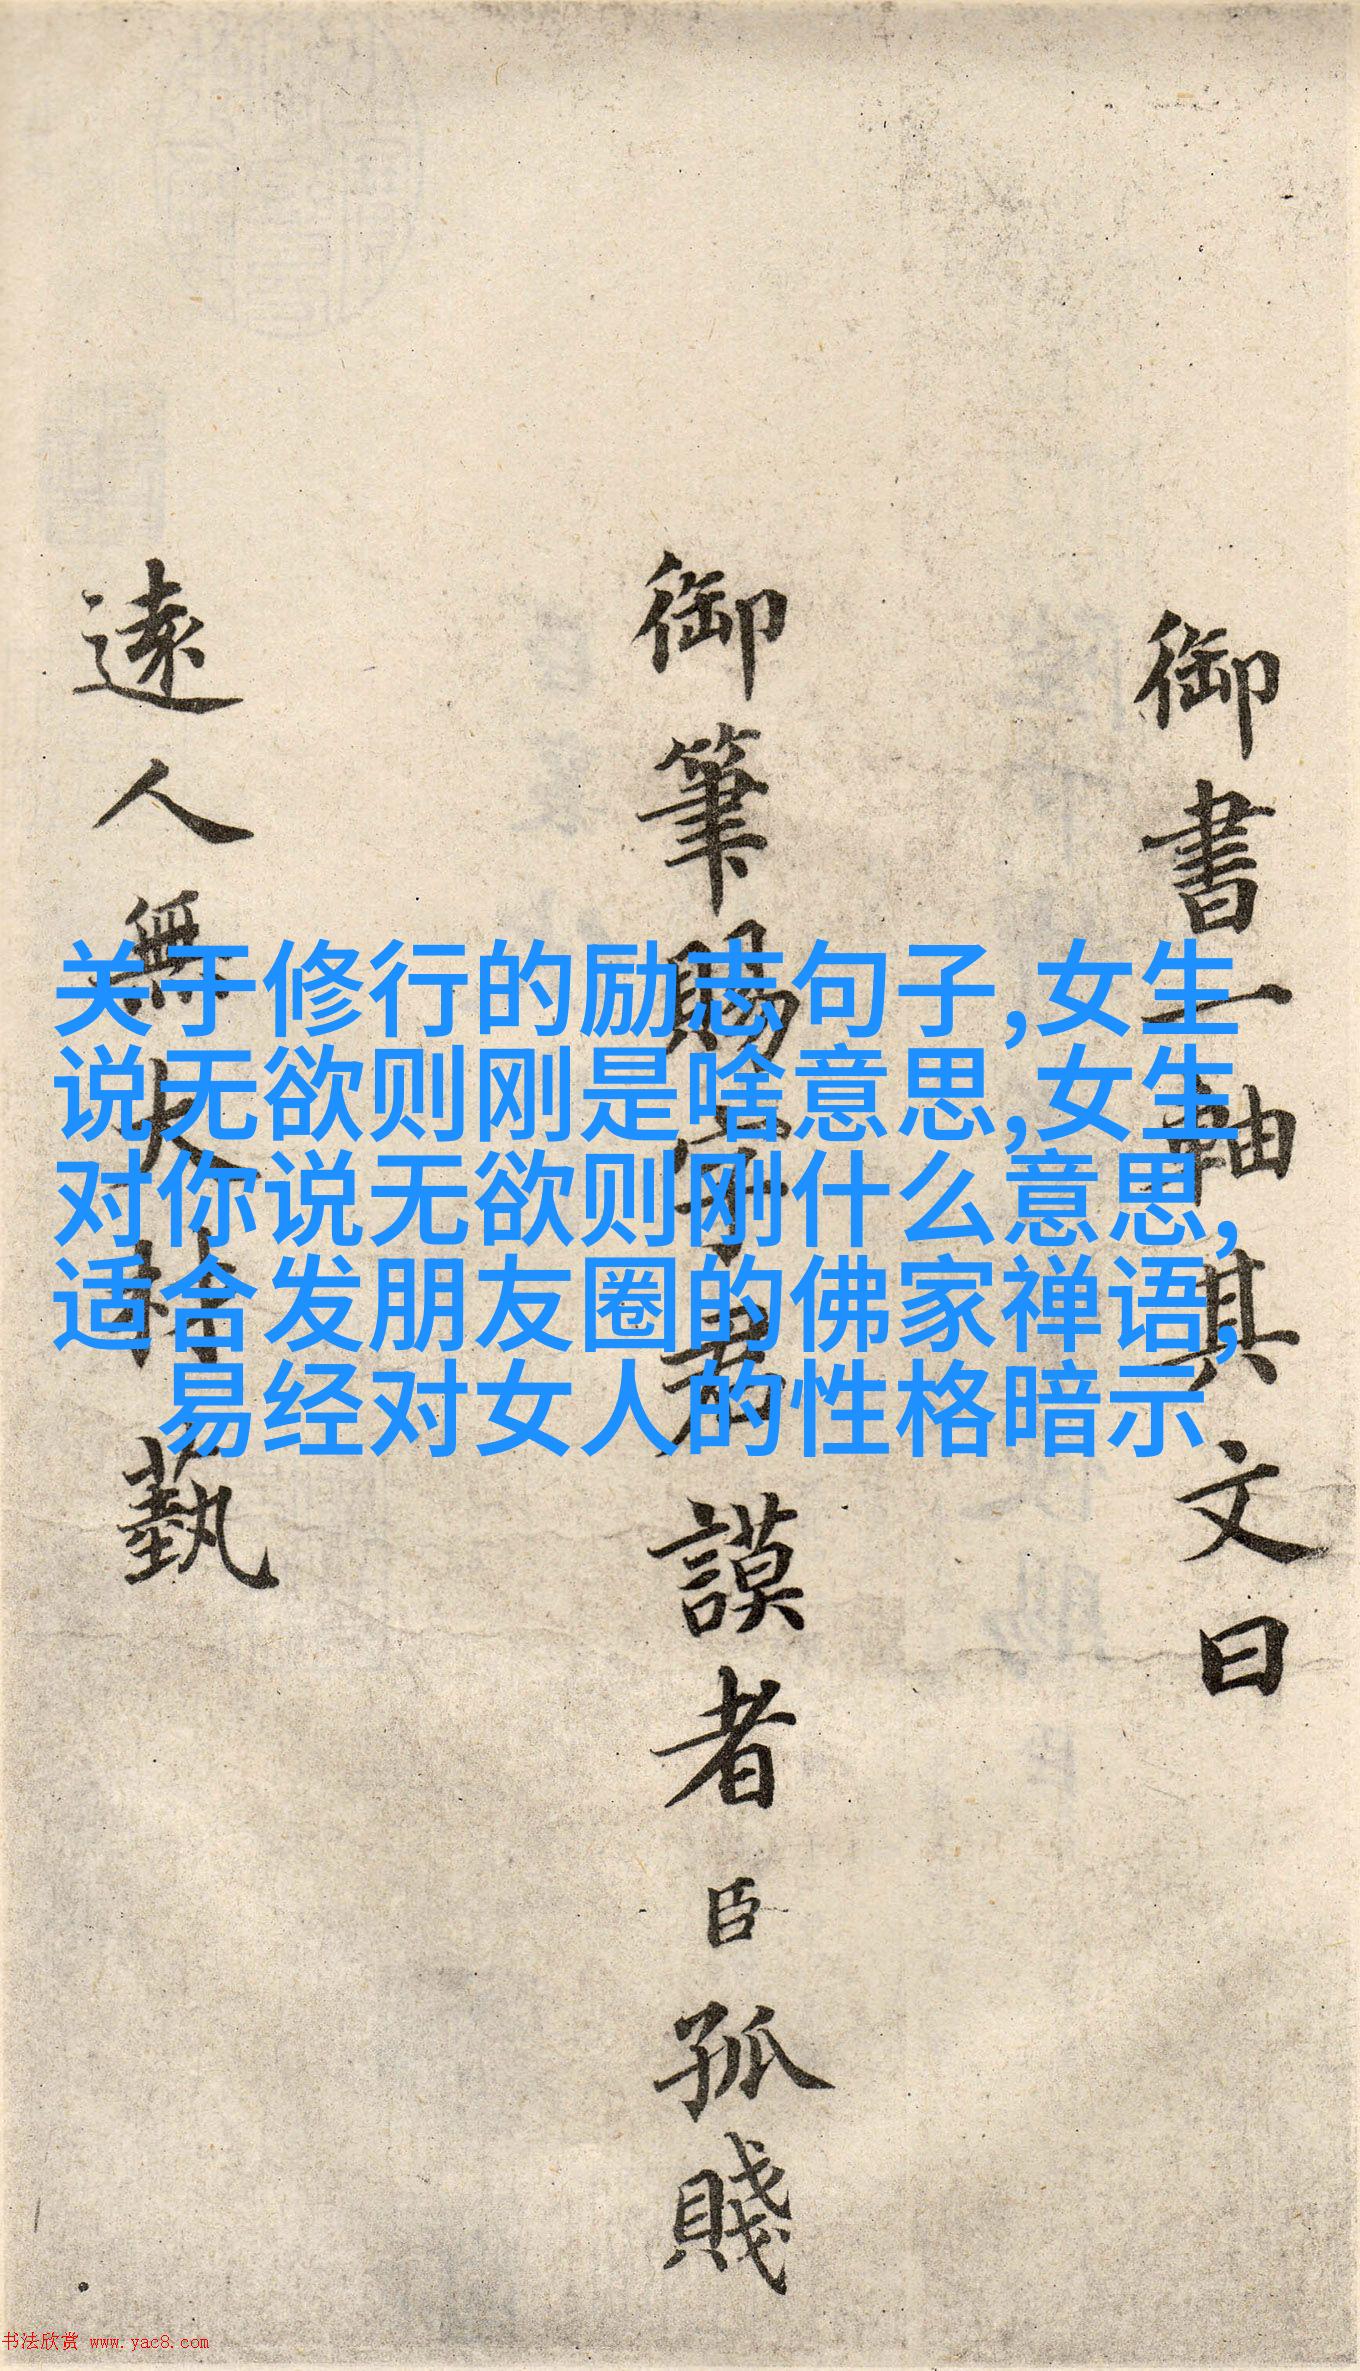 御書一軸其文曰
御筆賜字君謨者臣孤賤
遠人無大材藝
关于修行的励志句子,女生
说无欲则刚是啥意思,女生
对你说无欲则刚什么意思,
适合发朋友圈的佛家禅语,
易经对女人的性格暗示
书法欣赏 www.yac8.com